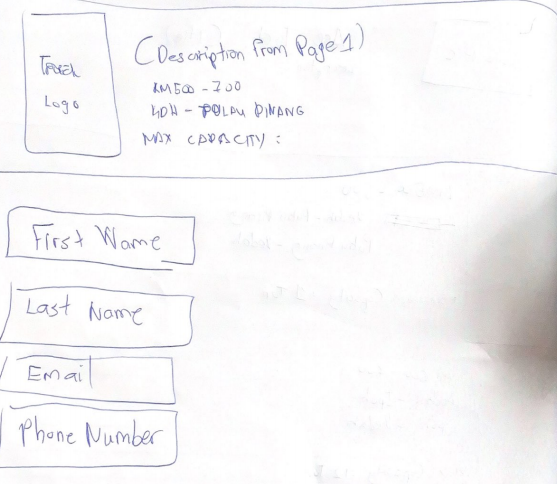 Logo
(Description from Page 1)
RM500 - 700
- PULAU PINANG
MAX CAPACITY :
First Name
Last Name
Email
Phone Number